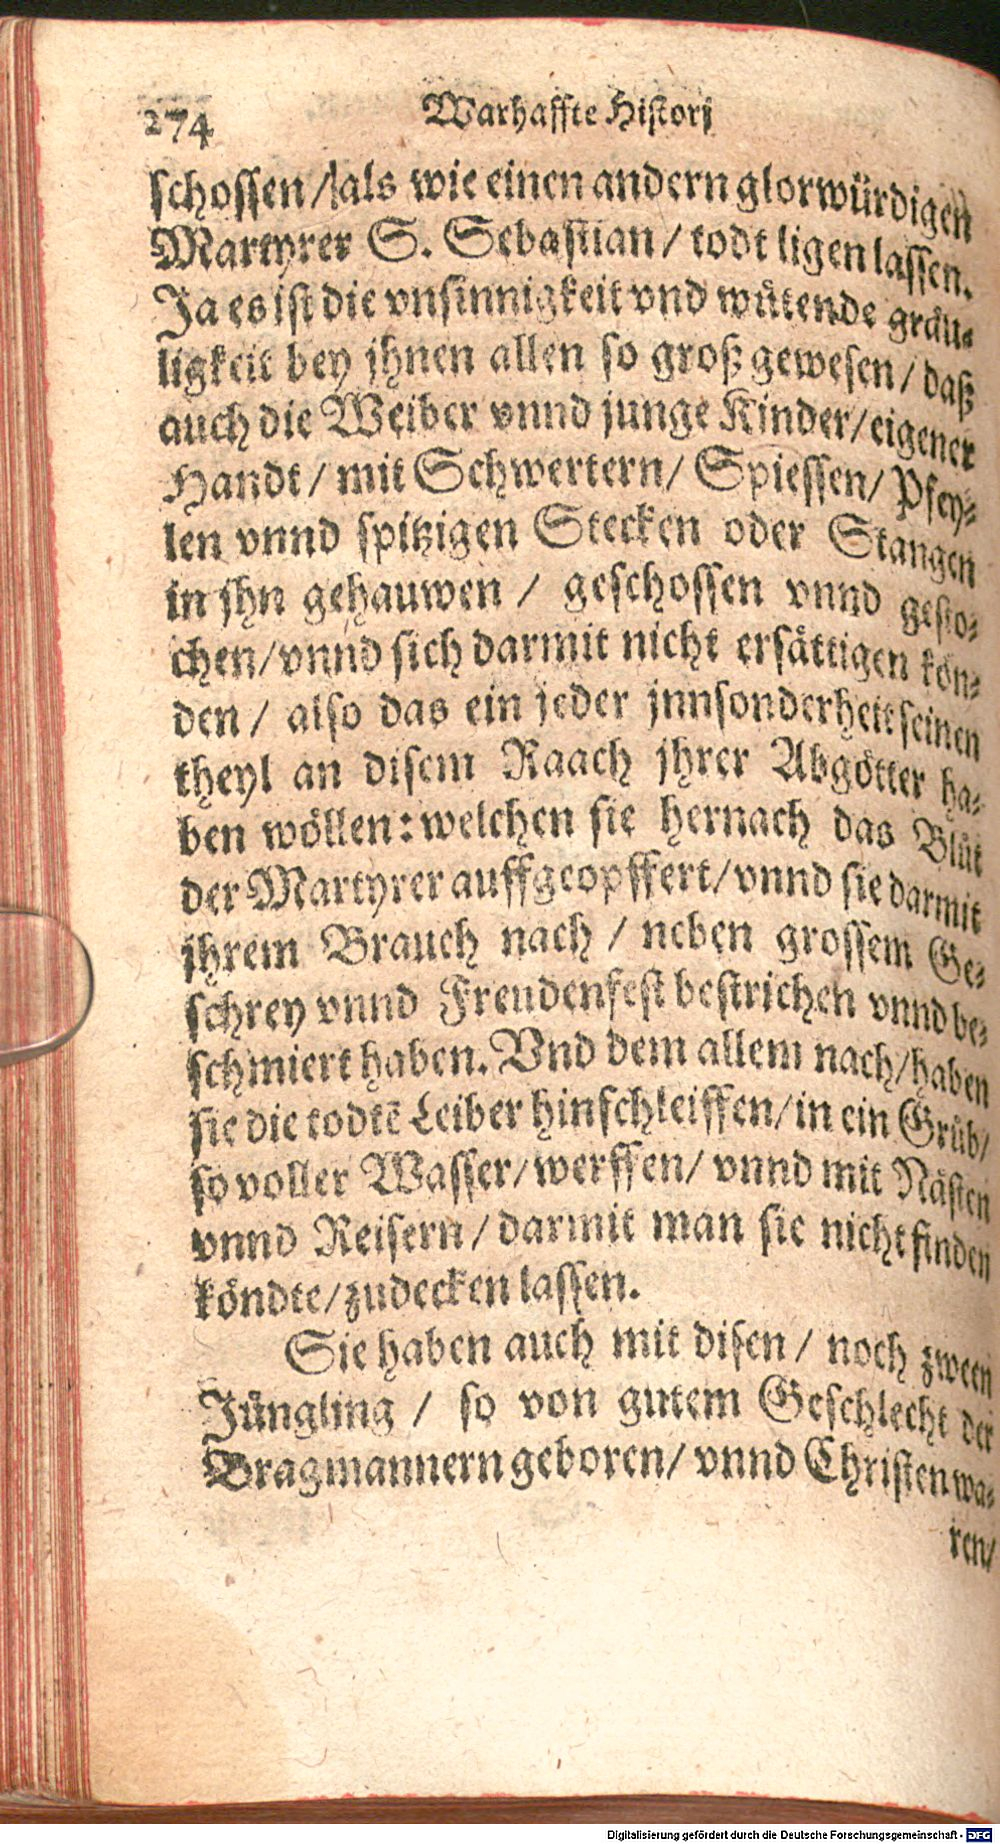 274 Warhaffte Historj
schossen / als wie einen andern glorwürdigen
Martyrer S. Sebastian / todt ligen lassen.
Ja es ist die vnsinnigkeit vnd wütende gräu-
ligkeit bey jhnen allen so groß gewesen / daß
auch die Weiber vnnd junge Kinder / eigener
Handt / mit Schwertern / Spiessen / Pfey-
len vnnd spitzigen Stecken oder Stangen
in jhn gehauwen / geschossen vnnd gesto-
chen / vnnd sich darmit nicht ersättigen kön-
den / also das ein jeder jnnsonderheit seinen
theyl an disem Raach jhrer Abgötter ha-
ben wöllen: welchen sie hernach das Blůt
der Martyrer auffgeopffert / vnnd sie darmit
jhrem Brauch nach / neben grossem Ge-
schrey vnnd Freudenfest bestrichen vnnd be-
schmiert haben. Vnd dem allem nach / haben
sie die todtē Leiber hinschleiffen / in ein Grůb /
so voller Wasser / werffen / vnnd mit Nästen
vnnd Reisern / darmit man sie nicht finden
köndte / zudecken lassen.
Sie haben auch mit disen / noch zween
Jüngling / so von gutem Geschlecht der
Bragmannern geboren / vnnd Christen wa-
ren /
Digitalisierung gefördert durch die Deutsche Forschungsgemeinschaft - DFG